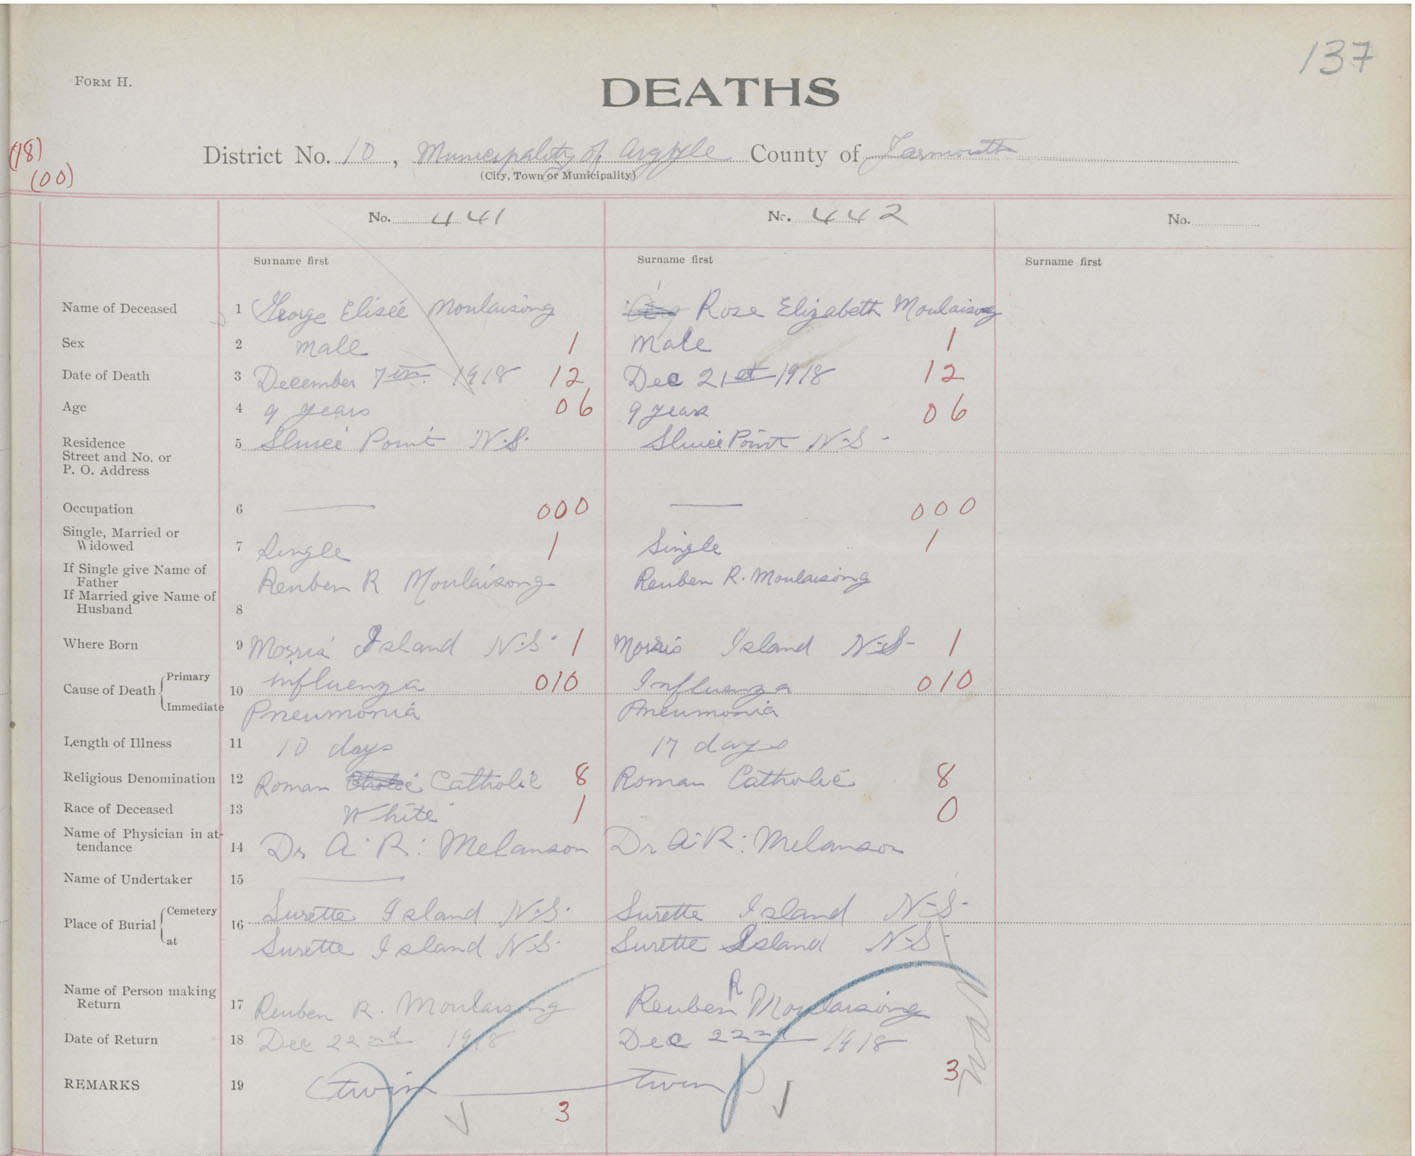 137
FORM H.
DEATHS
(18)
(00)
District No. 10, Municipality of Argyle County of Yarmouth
(City, Town or Municipality)
No. 441 No. 442 No.
Surname first Surname first Surname first
Name of Deceased 1 George Eliseé Moulaisong Rose Elizabeth Moulaisong
Sex 2 male 1 Male 1
Date of Death 3 December 7th 1918 12 Dec 21st 1918 12
Age 4 9 years 06 9 years 06
Residence
Street and No. or
P. O. Address 5 Sluice Point N.S. Sluice Point N-S-
Occupation 6 000 000
Single, Married or
Widowed 7 Single 1 Single 1
If Single give Name of
Father Reuben R Moulaisong Reuben R. Moulaisong
If Married give Name of
Husband 8
Where Born 9 Morris Island N-S- 1 Morris Island N-S- 1
Cause of Death Primary 10 influenza 010 Influenza 010
Immediate Pneumonia Pneumonia
Length of Illness 11 10 days 17 days
Religious Denomination 12 Roman Catholic 8 Roman Catholic 8
Race of Deceased 13 White 1 0
Name of Physician in at-
tendance 14 Dr A. R. Melanson Dr A. R. Melanson
Name of Undertaker 15
Place of Burial Cemetery 16 Surette Island N-S. Surette Island N-S-
at Surette Island N-S. Surette Island N-S-
Name of Person making
Return 17 Reuben R. Moulaisong Reuben R Moulaisong
Date of Return 18 Dec 22nd 1918 Dec 22nd 1918
REMARKS 19 (twin twin)
3 3